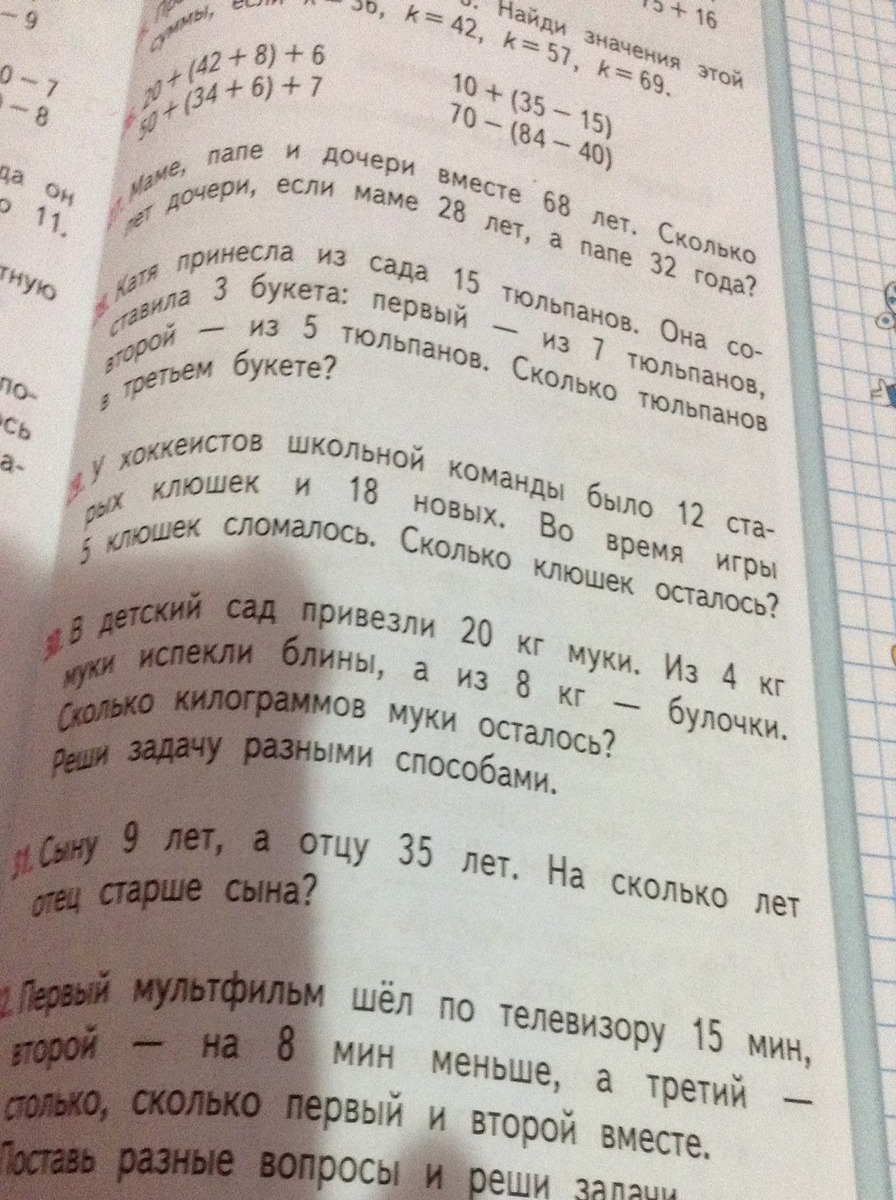 – 9
0 – 7
– 8
да он
о 11.
тную
ло-
ось
а-
75 + 16
Найди значения этой
суммы, если k = 36, k = 42, k = 57, k = 69.
20 + (42 + 8) + 6
10 + (35 – 15)
50 + (34 + 6) + 7
70 – (84 – 40)
Маме, папе и дочери вместе 68 лет. Сколько
лет дочери, если маме 28 лет, а папе 32 года?
Катя принесла из сада 15 тюльпанов. Она со-
ставила 3 букета: первый — из 7 тюльпанов,
второй — из 5 тюльпанов. Сколько тюльпанов
в третьем букете?
29. У хоккеистов школьной команды было 12 ста-
рых клюшек и 18 новых. Во время игры
5 клюшек сломалось. Сколько клюшек осталось?
30. В детский сад привезли 20 кг муки. Из 4 кг
муки испекли блины, а из 8 кг — булочки.
Сколько килограммов муки осталось?
Реши задачу разными способами.
31. Сыну 9 лет, а отцу 35 лет. На сколько лет
отец старше сына?
2. Первый мультфильм шёл по телевизору 15 мин,
второй — на 8 мин меньше, а третий —
столько, сколько первый и второй вместе.
Поставь разные вопросы и реши задачи